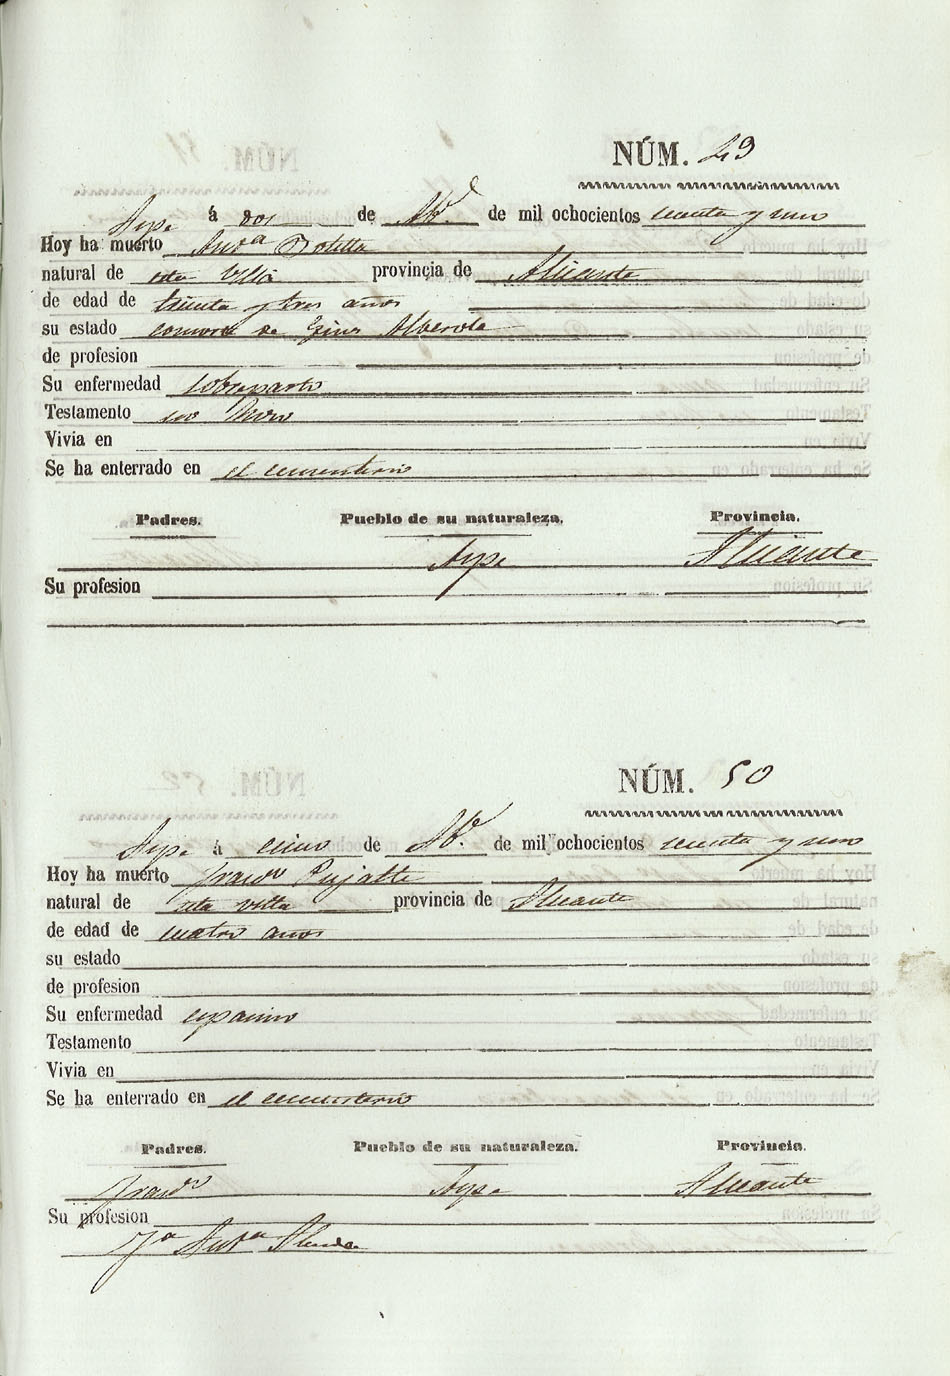 NÚM. 49
Aspe á dos de Abl. de mil ochocientos sesenta y uno
Hoy ha muerto Anta Botella
natural de esta Villa provincia de Alicante
de edad de treinta y tres años
su estado consorte de Gines Alberola
de profesion
Su enfermedad sobreparto
Testamento no hizo
Vivia en
Se ha enterrado en el cementerio
Padres. Pueblo de su naturaleza. Provincia.
Aspe Alicante
Su profesion
NÚM. 50
Aspe á cinco de Abl. de mil ochocientos sesenta y uno
Hoy ha muerto Franco Pujalte
natural de esta villa provincia de Alicante
de edad de cuatro años
su estado
de profesion
Su enfermedad
Testamento
Vivia en
Se ha enterrado en el cementerio
Padres. Pueblo de su naturaleza. Provincia.
Franco Aspe Alicante
Su profesion
Anta